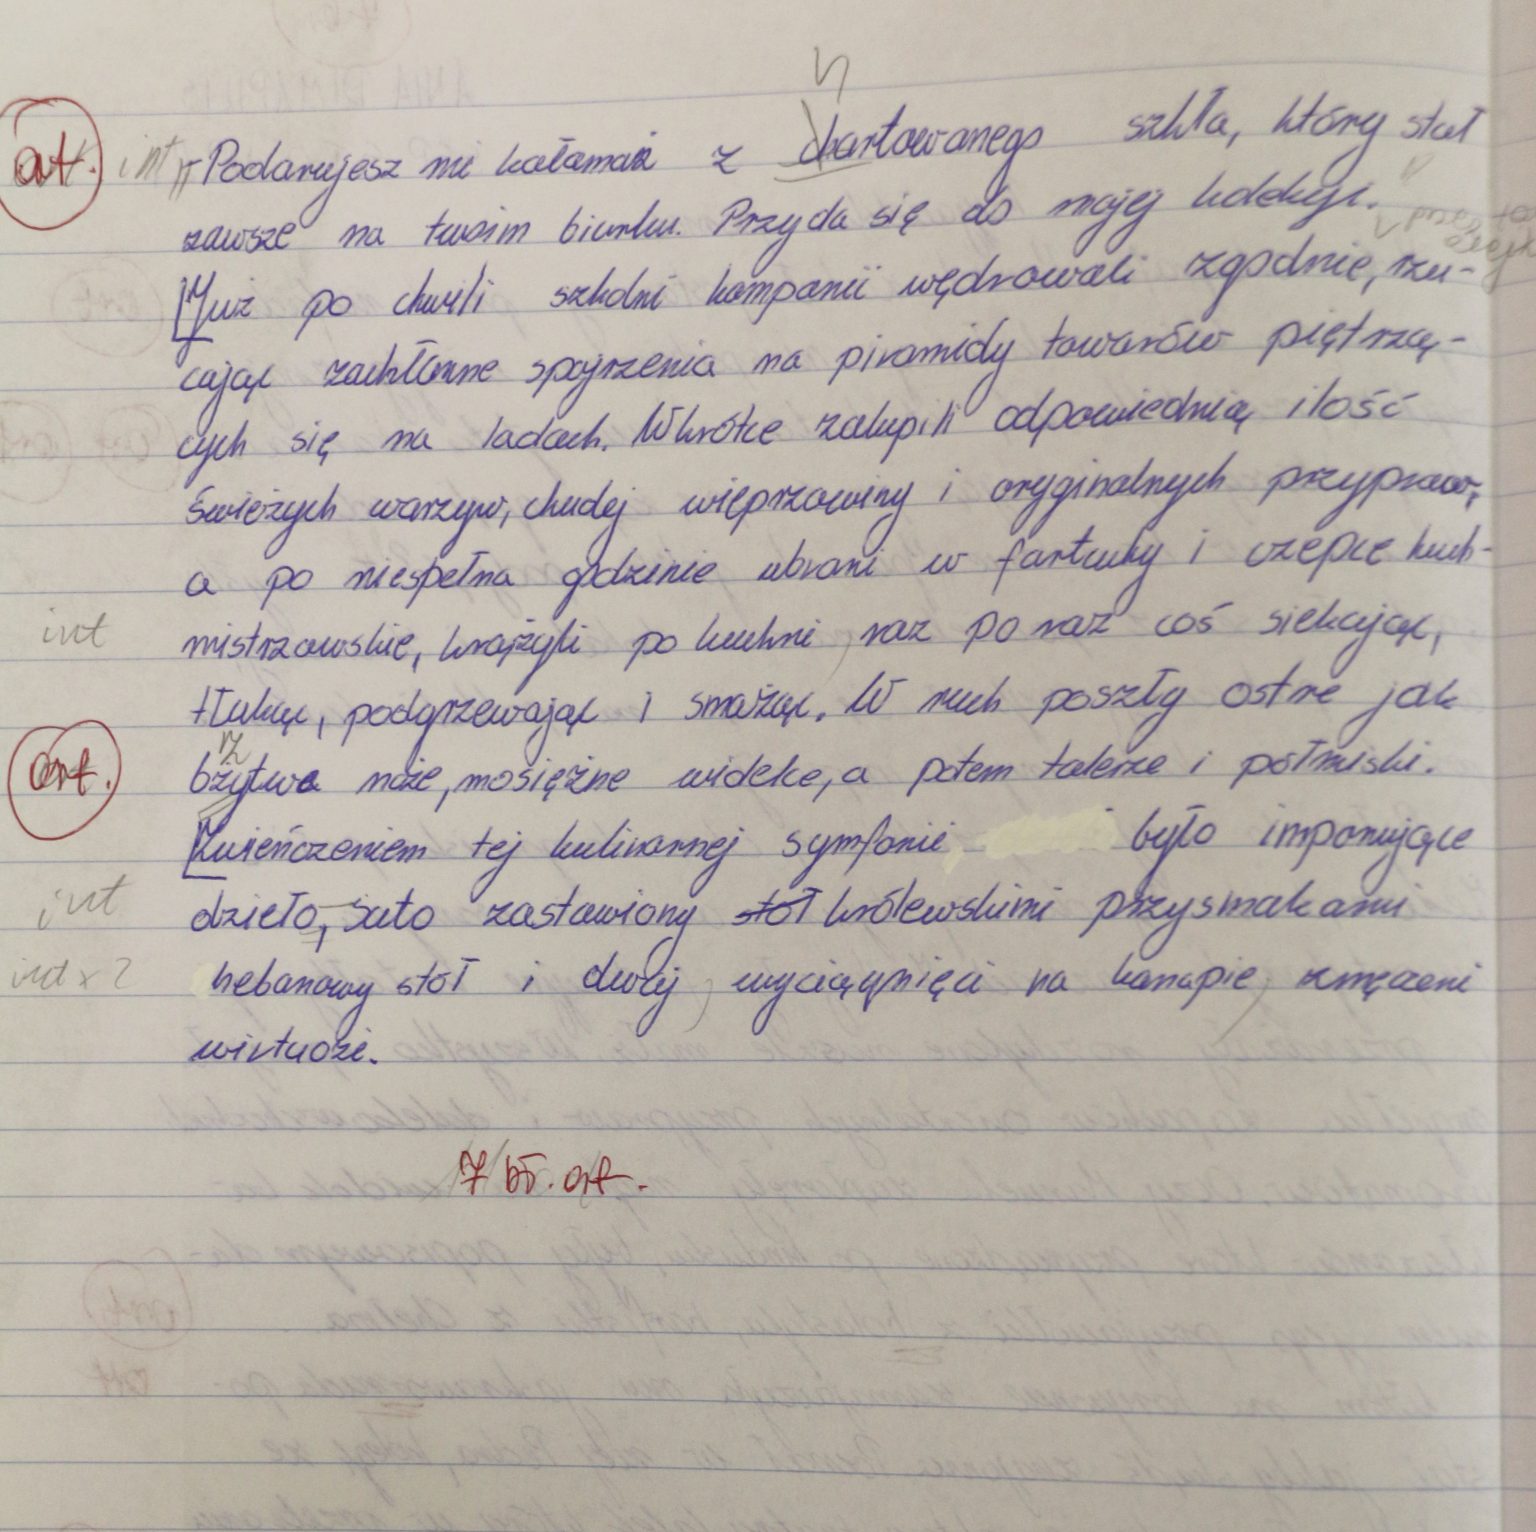 ort. int Podarujesz mi kałamaż z chartowanego szkła, który stał
zawsze na twoim biurku. Przyda się do mojej kolekcji.
Już po chwili szkolni kompanii wędrowali zgodnie, rzu-
cając zachłanne spojrzenia na piramidy towarów piętrzą-
cych się na ladach. Wkrótce zakupili odpowiednią ilość
świeżych warzyw, chudej wieprzowiny i oryginalnych przypraw,
a po niespełna godzinie ubrani w fartuchy i czepce kuch-
int mistrzowskie, krążyli po kuchni, raz po raz coś siekając,
tłukąc, podgrzewając i smażąc. W ruch poszły ostre jak
rz
ort. bżytwa noże, mosiężne widelce, a potem talerze i półmiski.
Zwieńczeniem tej kulinarnej symfonii było imponujące
int dzieło, suto zastawiony stół królewskimi przysmakami
int x 2 hebanowy stół i dwój, wyciągnięci na kanapie, zmęczeni
wirtuozi.
7 bł. ort.